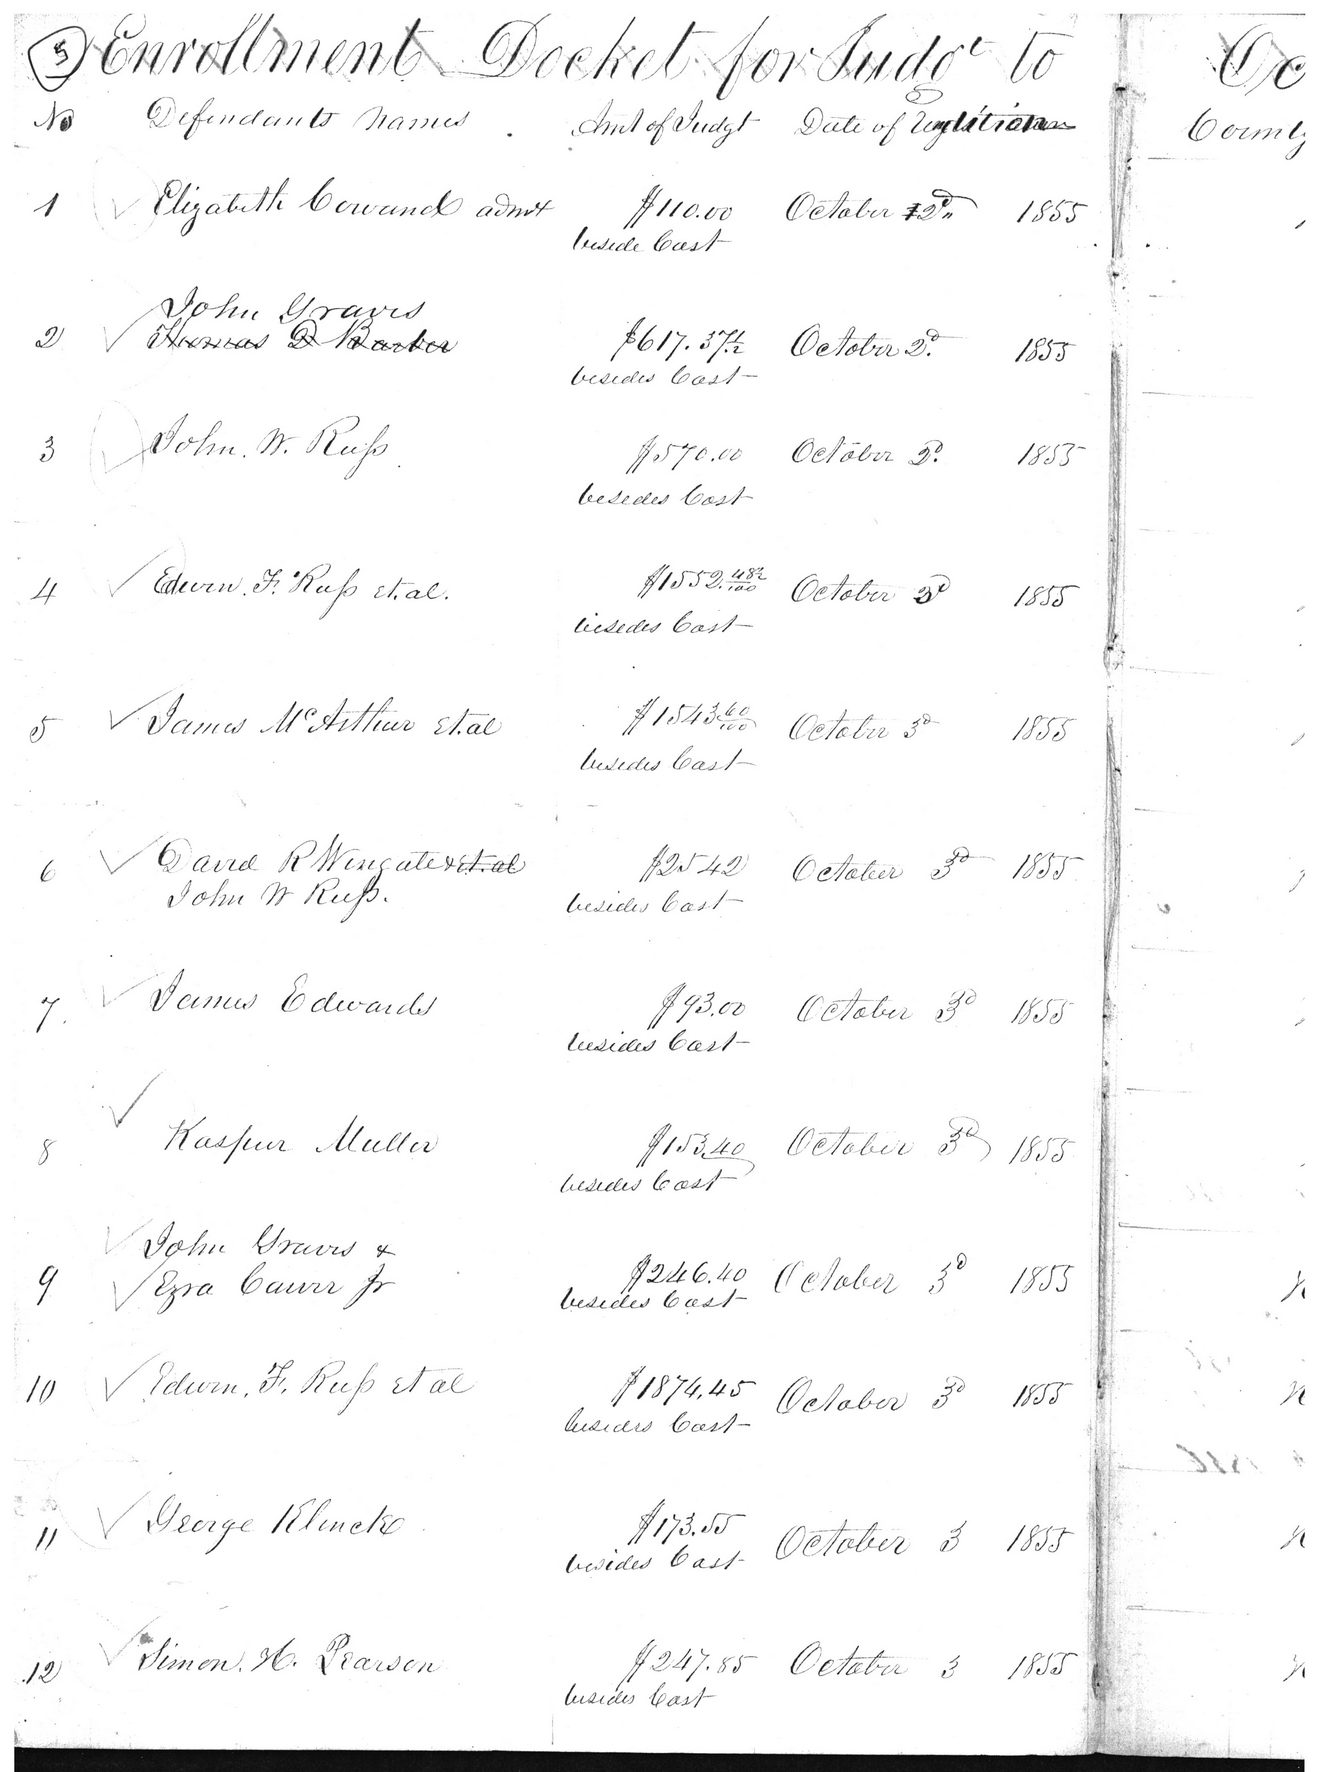 5 Enrollment Docket for Judgt to Oc
No Defendants Names Amt of Judgt Date of County
1 Elizabeth Cowand admx $110.00 October 2d 1855
beside Cost
John Graves
2 Thomas D Barber $617.37½ October 2d. 1855
besides Cost
3 John. W. Russ $570.00 October 2d. 1855
besedes Cost
4 Edwin. F. Russ et.al. $1552.48½/100 October 2d 1855
besedes Cost
5 James McArthur et.al $1543 60/100 October 3d 1855
besedes Cost
6 David R Wingate & et.al $25 42 October 3d 1855
John W Russ. besides Cost
7. James Edwards $93.00 October 3d 1855
besides Cost
8 Kaspur Muller $153.40 October 3d 1855
besedes Cost
John Graves &
9 Ezra Jr $246.40 October 3d 1855
besedes Cost
10 Edwin. F. Russ et al $1874.45 October 3d 1855
besides Cost
11 George Klinck $173.55 October 3 1855
besides Cost
12 Simon. H. Pearson $247.85 October 3 1855
besides Cost